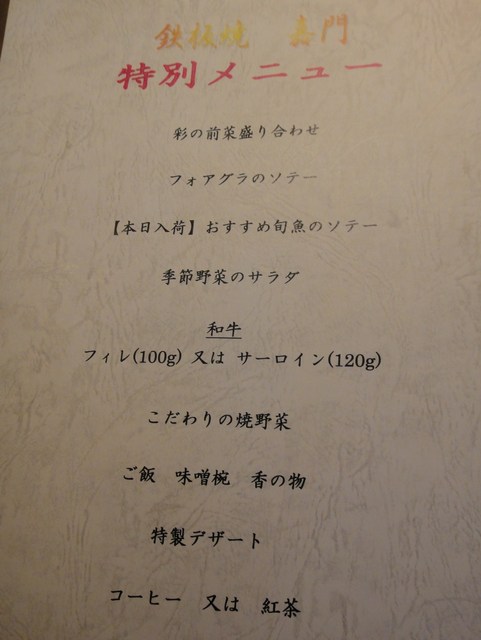 鉄板焼 嘉門
特別メニュー
彩の前菜盛り合わせ
フォアグラのソテー
【本日入荷】おすすめ旬魚のソテー
季節野菜のサラダ
和牛
フィレ(100g) 又は サーロイン(120g)
こだわりの焼野菜
ご飯 味噌椀 香の物
特製デザート
コーヒー 又は 紅茶